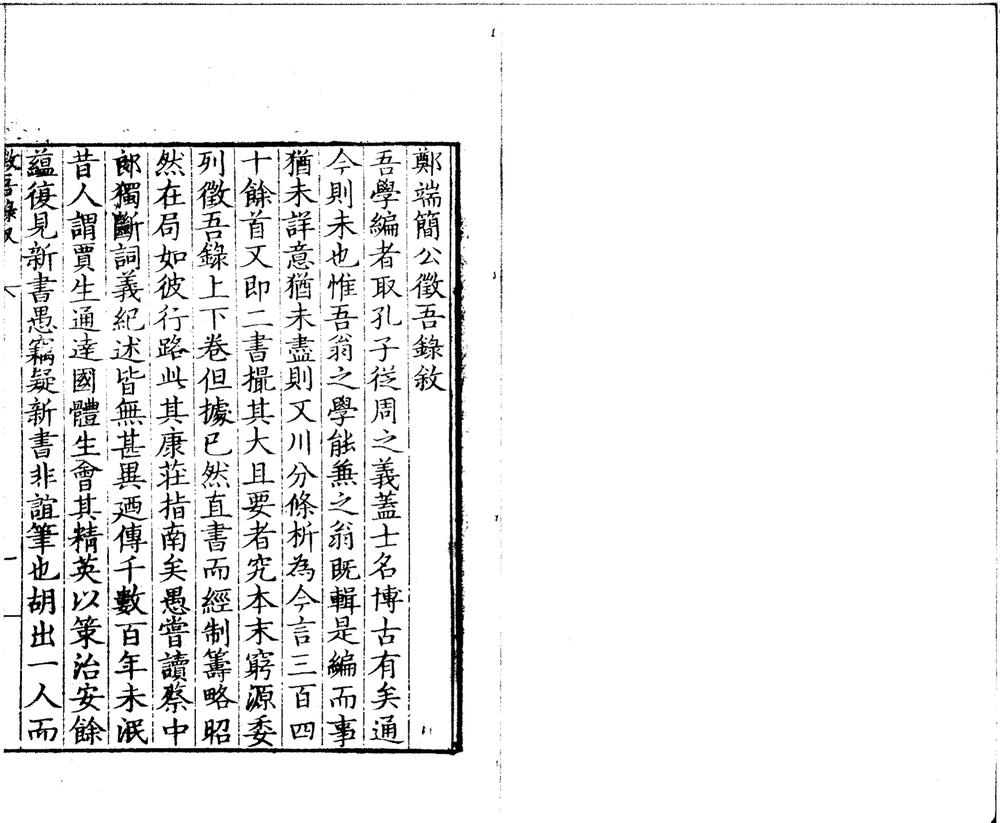 鄭端簡公徵吾錄敘
吾學編者取孔子從周之義蓋士名博古有矣通
今則未也惟吾翁之學能兼之翁既輯是編而事
猶未詳意猶未盡則又川分條析為今言三百四
十餘首又即二書撮其大且要者究本末窮源委
列徵吾錄上下卷但據已然直書而經制籌略昭
然在局如彼行路此其康莊指南矣愚嘗讀蔡中
郎獨斷詞義紀述皆無甚異廼傳千數百年未泯
昔人謂賈生通達國體生會其精英以策治安餘
蘊復見新書愚竊疑新書非誼筆也胡出一人而
徵吾錄叙
一